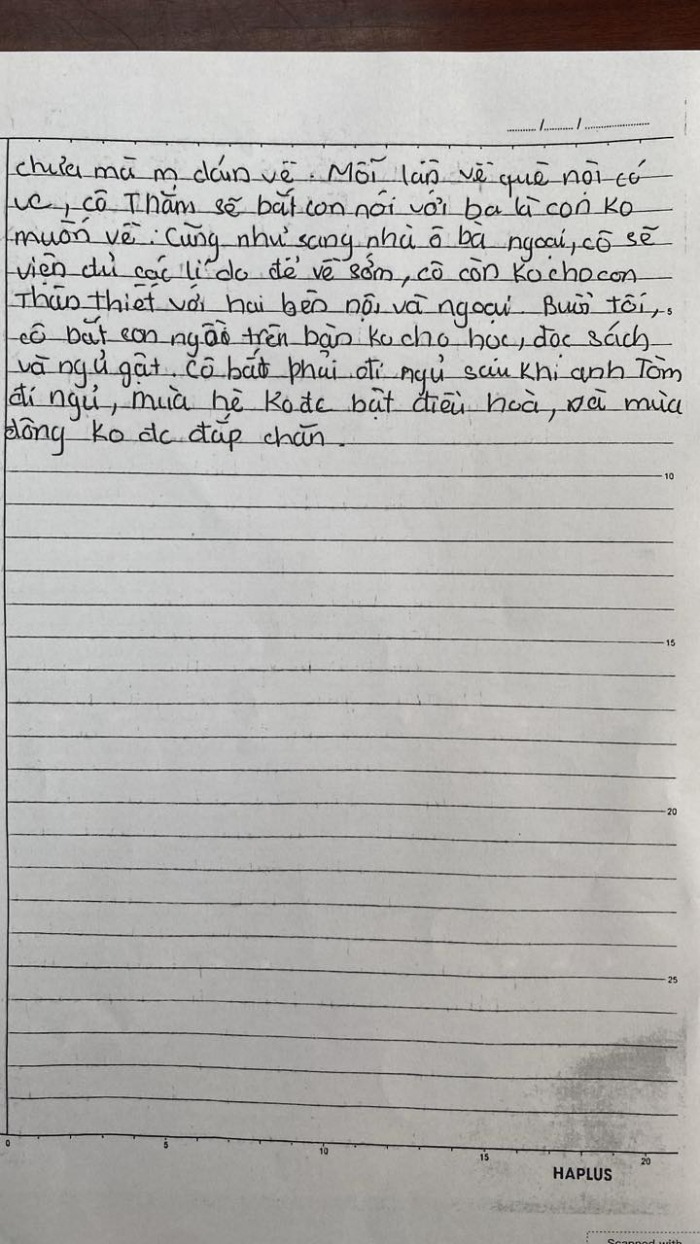 ....../....../............
chưa mà m dám về. Mỗi lần về quê nội có
vc, cô Thắm sẽ bắt con nói với ba là con ko
muốn về. Cũng như sang nhà ô bà ngoại, cô sẽ
viện đủ các lí do để về sớm, cô còn ko cho con
Thân thiết với hai bên nội và ngoại. Buổi tối,
cô bắt con ngồi trên bàn ko cho học, đọc sách
và ngủ gật. Cô bắt phải đi ngủ sau khi anh Tôm
đi ngủ, mùa hè ko đc bật điều hoà, và mùa
đông ko đc đắp chăn.
10
15
20
25
0 5 10 15 20
HAPLUS
Scanned with